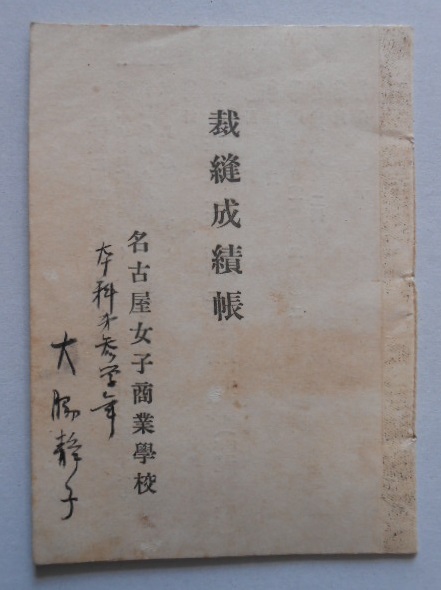 裁縫成績帳
名古屋女子商業學校
本科才参学年
大脇静子